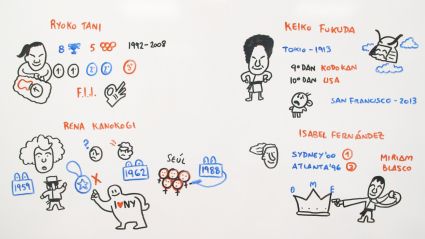 RYOKO TANI
8 5 1992-2008
1 1 2 2 3
F.I.J.
KEIKO FUKUDA
TOKIO-1913
9º DAN KODOKAN
10º DAN USA
SAN FRANCISCO-2013
RENA KANOKOGI
?
1959
X
1962
I ♥ NY
SEÚL
1988
ISABEL FERNÁNDEZ
SYDNEY'00 1
ATLANTA'96 3
MIRIAM
BLASCO
O M E